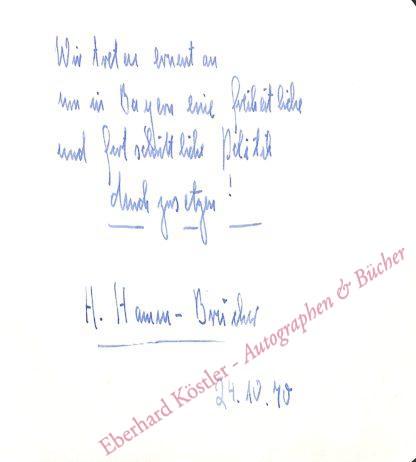 Wir treten erneut an
um in Bayern eine freiheitliche
und fortschrittliche Politik
durchzusetzen!
H. Hamm-Brücher
24.10.70
Eberhard Köstler - Autographen & Bücher